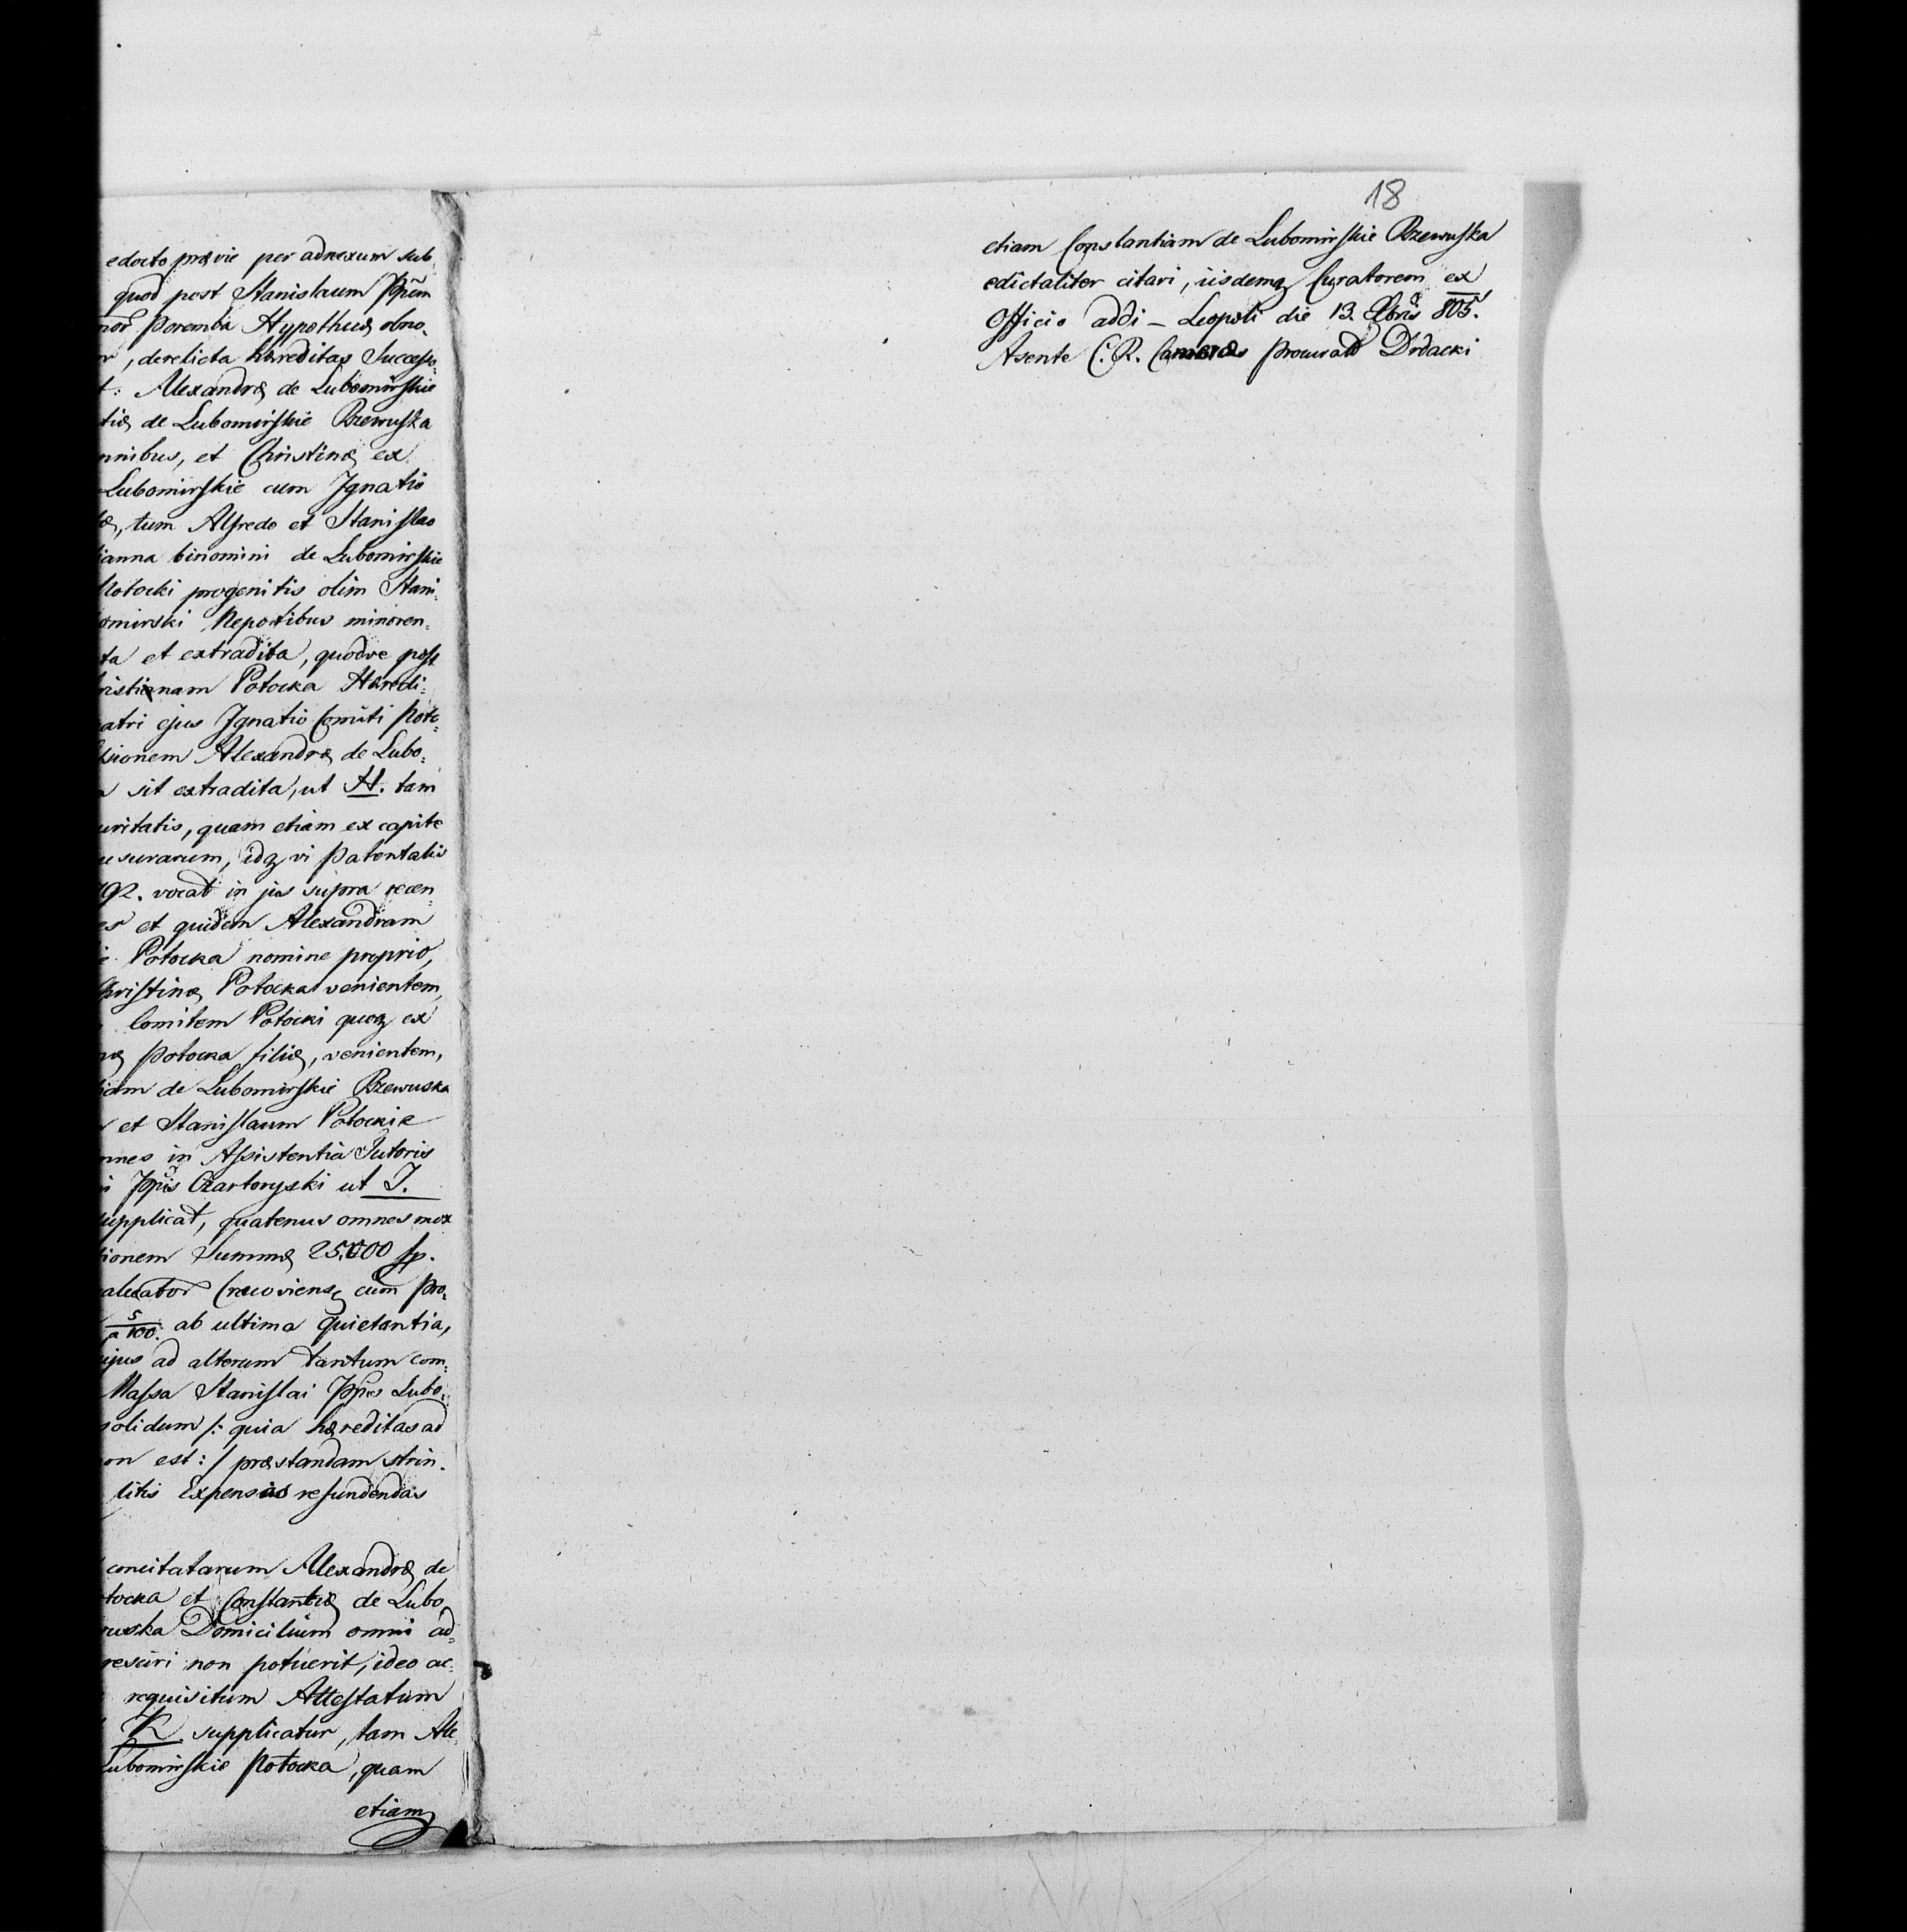 edocto prævie per adnexum sub
quod post Stanislaum Ppēm
Poremba Hypothecæ obno-
, derelicta hæreditas Successo-
t: Alexandræ de Lubomirskie
tiæ de Lubomirskie Rzewuska
nnibus, et Christinæ ex
Lubomirskie cum Ignatio
tum Alfredo et Stanislao
ianna binomini de Lubomirskie
Potocki progenitis olim Stani-
omirski Nepotibus minoren-
ta et extradita, quodve post
ristinam Potocka Hæredi-
atri ejus Ignatio Comiti Poto-
sionem Alexandræ de Lubo-
sit extradita, ut H. tam
uritatis, quam etiam ex capite
usurarum, idq vi Patentalis
792. vocat in jus supra recen-
es et quidem Alexandram
Potocka nomine proprio,
Christinæ Potocka venientem,
Comitem Potocki quoq ex
næ Potocka filiæ, venientem,
iam de Lubomirskie Rzewuska
et Stanislaum Potockie
nnes in Assistentia Tutoris
i Ppis Czartoryski ut J.
supplicat, quatenus omnes mox
tionem Summæ 25.000 fp.
Cracoviense cum pro-
a 5/100. ab ultima quietantia,
ujus ad alterum tantum com-
Massa Stanislai Ppis Lubo-
solidum /: quia hæreditas ad
on est :/ præstandam strin-
litis Expensas refundendas
concitatarum Alexandræ de
tocka et Constantiæ de Lubo
wuska Domicilium omni ad-
resciri non potuerit, ideo ac-
requisitum Attestatum
K supplicatur, tam Ale-
Lubomirskie Potocka, quam
etiam
18
etiam Constantiam de Lubomirskie Rzewuska
edictaliter citari, iisdemq Curatorem ex
Officio addi – Leopoli die 13. Xbris 805.
Agente C. R. Cameræ Procurat Drdacki